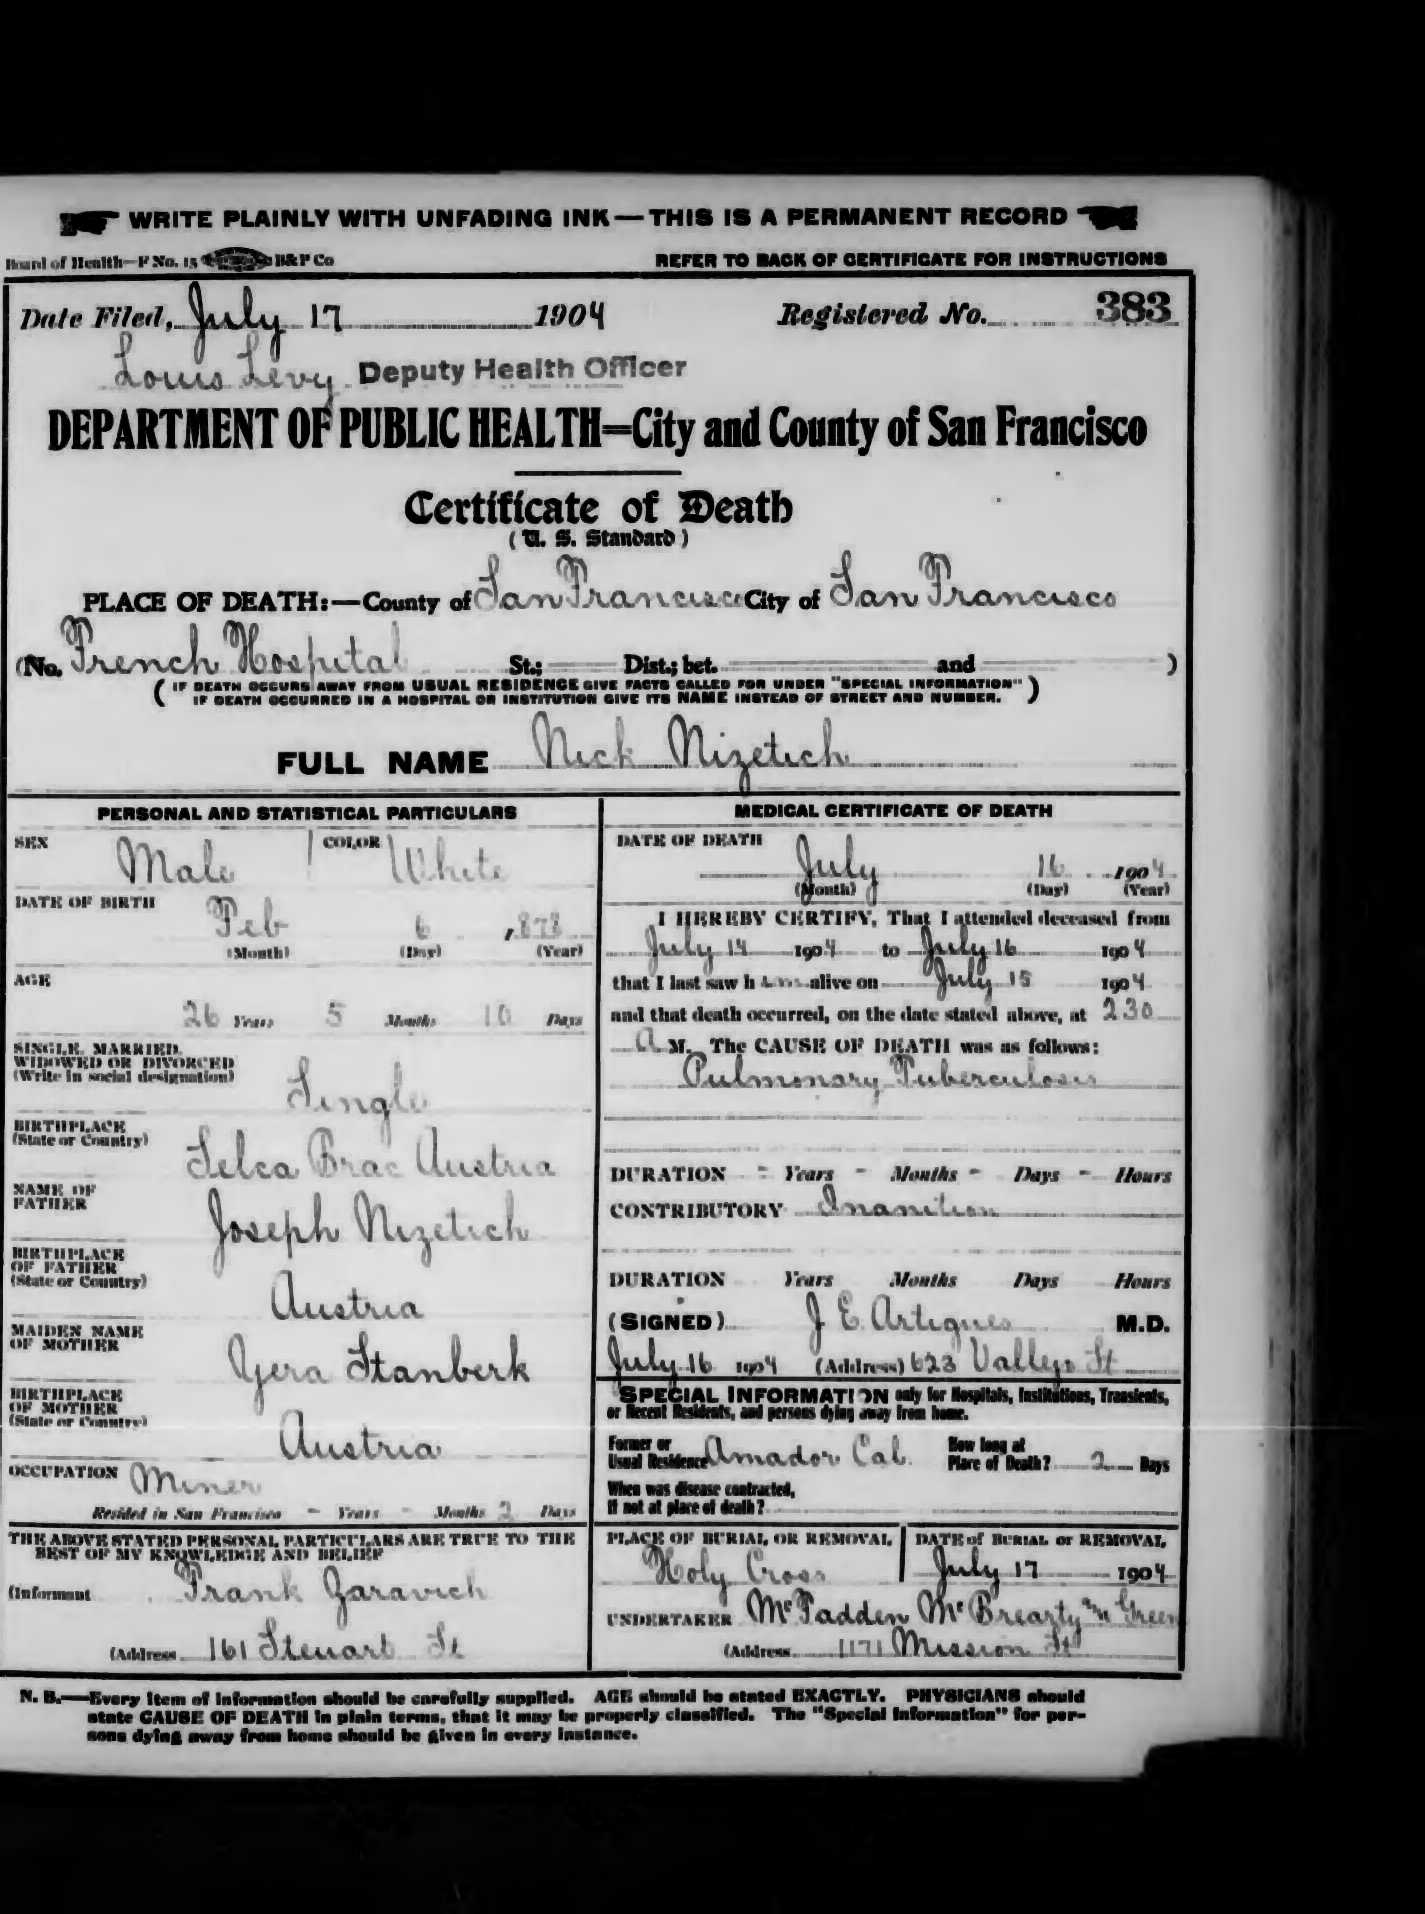 WRITE PLAINLY WITH UNFADING INK — THIS IS A PERMANENT RECORD
Board of Health—F No. 15 B&P Co REFER TO BACK OF CERTIFICATE FOR INSTRUCTIONS
Date Filed, July 17 1904 Registered No. 383
Louis Levy Deputy Health Officer
DEPARTMENT OF PUBLIC HEALTH=City and County of San Francisco
Certificate of Death
(U. S. Standard)
PLACE OF DEATH:—County of San Francisco City of San Francisco
(No. French Hospital St.; Dist.; bet. and )
( IF DEATH OCCURS AWAY FROM USUAL RESIDENCE GIVE FACTS CALLED FOR UNDER "SPECIAL INFORMATION" )
( IF DEATH OCCURRED IN A HOSPITAL OR INSTITUTION GIVE ITS NAME INSTEAD OF STREET AND NUMBER. )
FULL NAME Nick Nizetich
PERSONAL AND STATISTICAL PARTICULARS
SEX Male COLOR White
DATE OF BIRTH
Feb 6 , 878
(Month) (Day) (Year)
AGE
26 Years 5 Months 10 Days
SINGLE, MARRIED,
WIDOWED OR DIVORCED
(Write in social designation)
Single
BIRTHPLACE
(State or Country)
Selca Brac Austria
NAME OF
FATHER
Joseph Nizetich
BIRTHPLACE
OF FATHER
(State or Country)
Austria
MAIDEN NAME
OF MOTHER
Gera Stanberk
BIRTHPLACE
OF MOTHER
(State or Country)
Austria
OCCUPATION Miner
Resided in San Francisco - Years - Months 2 Days
THE ABOVE STATED PERSONAL PARTICULARS ARE TRUE TO THE
BEST OF MY KNOWLEDGE AND BELIEF
(Informant Frank Zaravich
(Address 161 Steuart St
MEDICAL CERTIFICATE OF DEATH
DATE OF DEATH
July 16 1904
(Month) (Day) (Year)
I HEREBY CERTIFY, That I attended deceased from
July 14 1904 to July 16 1904
that I last saw h im alive on July 15 1904
and that death occurred, on the date stated above, at 230
A M. The CAUSE OF DEATH was as follows:
Pulmonary Tuberculosis
DURATION - Years - Months - Days - Hours
CONTRIBUTORY Inanition
DURATION Years Months Days Hours
(SIGNED) J E Artigues M.D.
July 16 1904 (Address) 623 Vallejo St
SPECIAL INFORMATION only for Hospitals, Institutions, Transients,
or Recent Residents, and persons dying away from home.
Former or
Usual Residence Amador Cal.
How long at
Place of Death? 2 Days
When was disease contracted,
If not at place of death?
PLACE OF BURIAL OR REMOVAL
Holy Cross
DATE of BURIAL or REMOVAL
July 17 1904
UNDERTAKER McFadden McBrearty and Green
(Address 1171 Mission St
N. B.—Every item of information should be carefully supplied. AGE should be stated EXACTLY. PHYSICIANS should
state CAUSE OF DEATH in plain terms, that it may be properly classified. The "Special Information" for per-
sons dying away from home should be given in every instance.